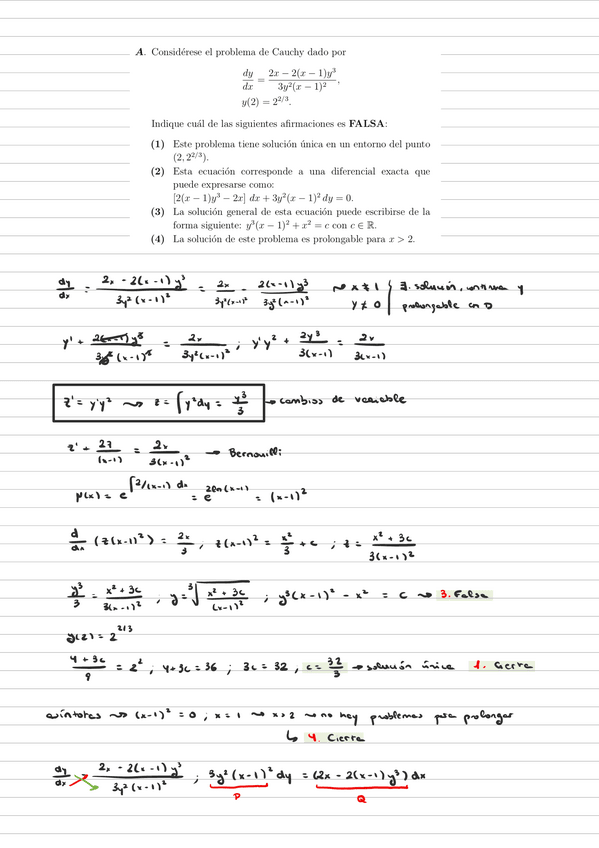 A. Considérese el problema de Cauchy dado por
dy/dx = (2x − 2(x − 1)y³)/(3y²(x − 1)²),
y(2) = 2^{2/3}.
Indique cuál de las siguientes afirmaciones es FALSA:
(1) Este problema tiene solución única en un entorno del punto
(2, 2^{2/3}).
(2) Esta ecuación corresponde a una diferencial exacta que
puede expresarse como:
[2(x − 1)y³ − 2x] dx + 3y²(x − 1)² dy = 0.
(3) La solución general de esta ecuación puede escribirse de la
forma siguiente: y³(x − 1)² + x² = c con c ∈ ℝ.
(4) La solución de este problema es prolongable para x > 2.
dy/dx = (2x − 2(x−1)y³)/(3y²(x−1)²) = 2x/(3y²(x−1)²) − 2(x−1)y³/(3y²(x−1)²) ⇝ x ≠ 1 } ∃. solución, y
y ≠ 0 prolongable en D
y' + 2(x−1)y³/(3y²(x−1)²) = 2x/(3y²(x−1)²) ; y'y² + 2y³/(3(x−1)) = 2x/(3(x−1))
z' = y'y² ⇝ z = ∫y²dy = y³/3 → cambios de variable
z' + 2z/(x−1) = 2x/(3(x−1)²) → Bernouilli
μ(x) = e^{∫2/(x−1) dx} = e^{2ln(x−1)} = (x−1)²
d/dx (z(x−1)²) = 2x/3 , z(x−1)² = x²/3 + c ; z = (x² + 3c)/(3(x−1)²)
y³/3 = (x² + 3c)/(3(x−1)²) , y = ³√((x² + 3c)/(x−1)²) ; y³(x−1)² − x² = c ⇝ 3. Falsa
y(2) = 2^{2/3}
(4 + 3c)/9 = 2² ; 4+3c = 36 ; 3c = 32 , c = 32/3 → solución única 1. Cierta
asíntotas ⇝ (x−1)² = 0 ; x = 1 ⇝ x > 2 ⇝ no hay problemas para prolongar
↳ 4. Cierta
dy/dx = (2x − 2(x−1)y³)/(3y²(x−1)²) ; 3y²(x−1)² dy = (2x − 2(x−1)y³) dx
P Q